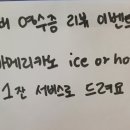 영수증 리뷰 이벤트
아메리카노 ice or ho
1잔 서비스로 드려요